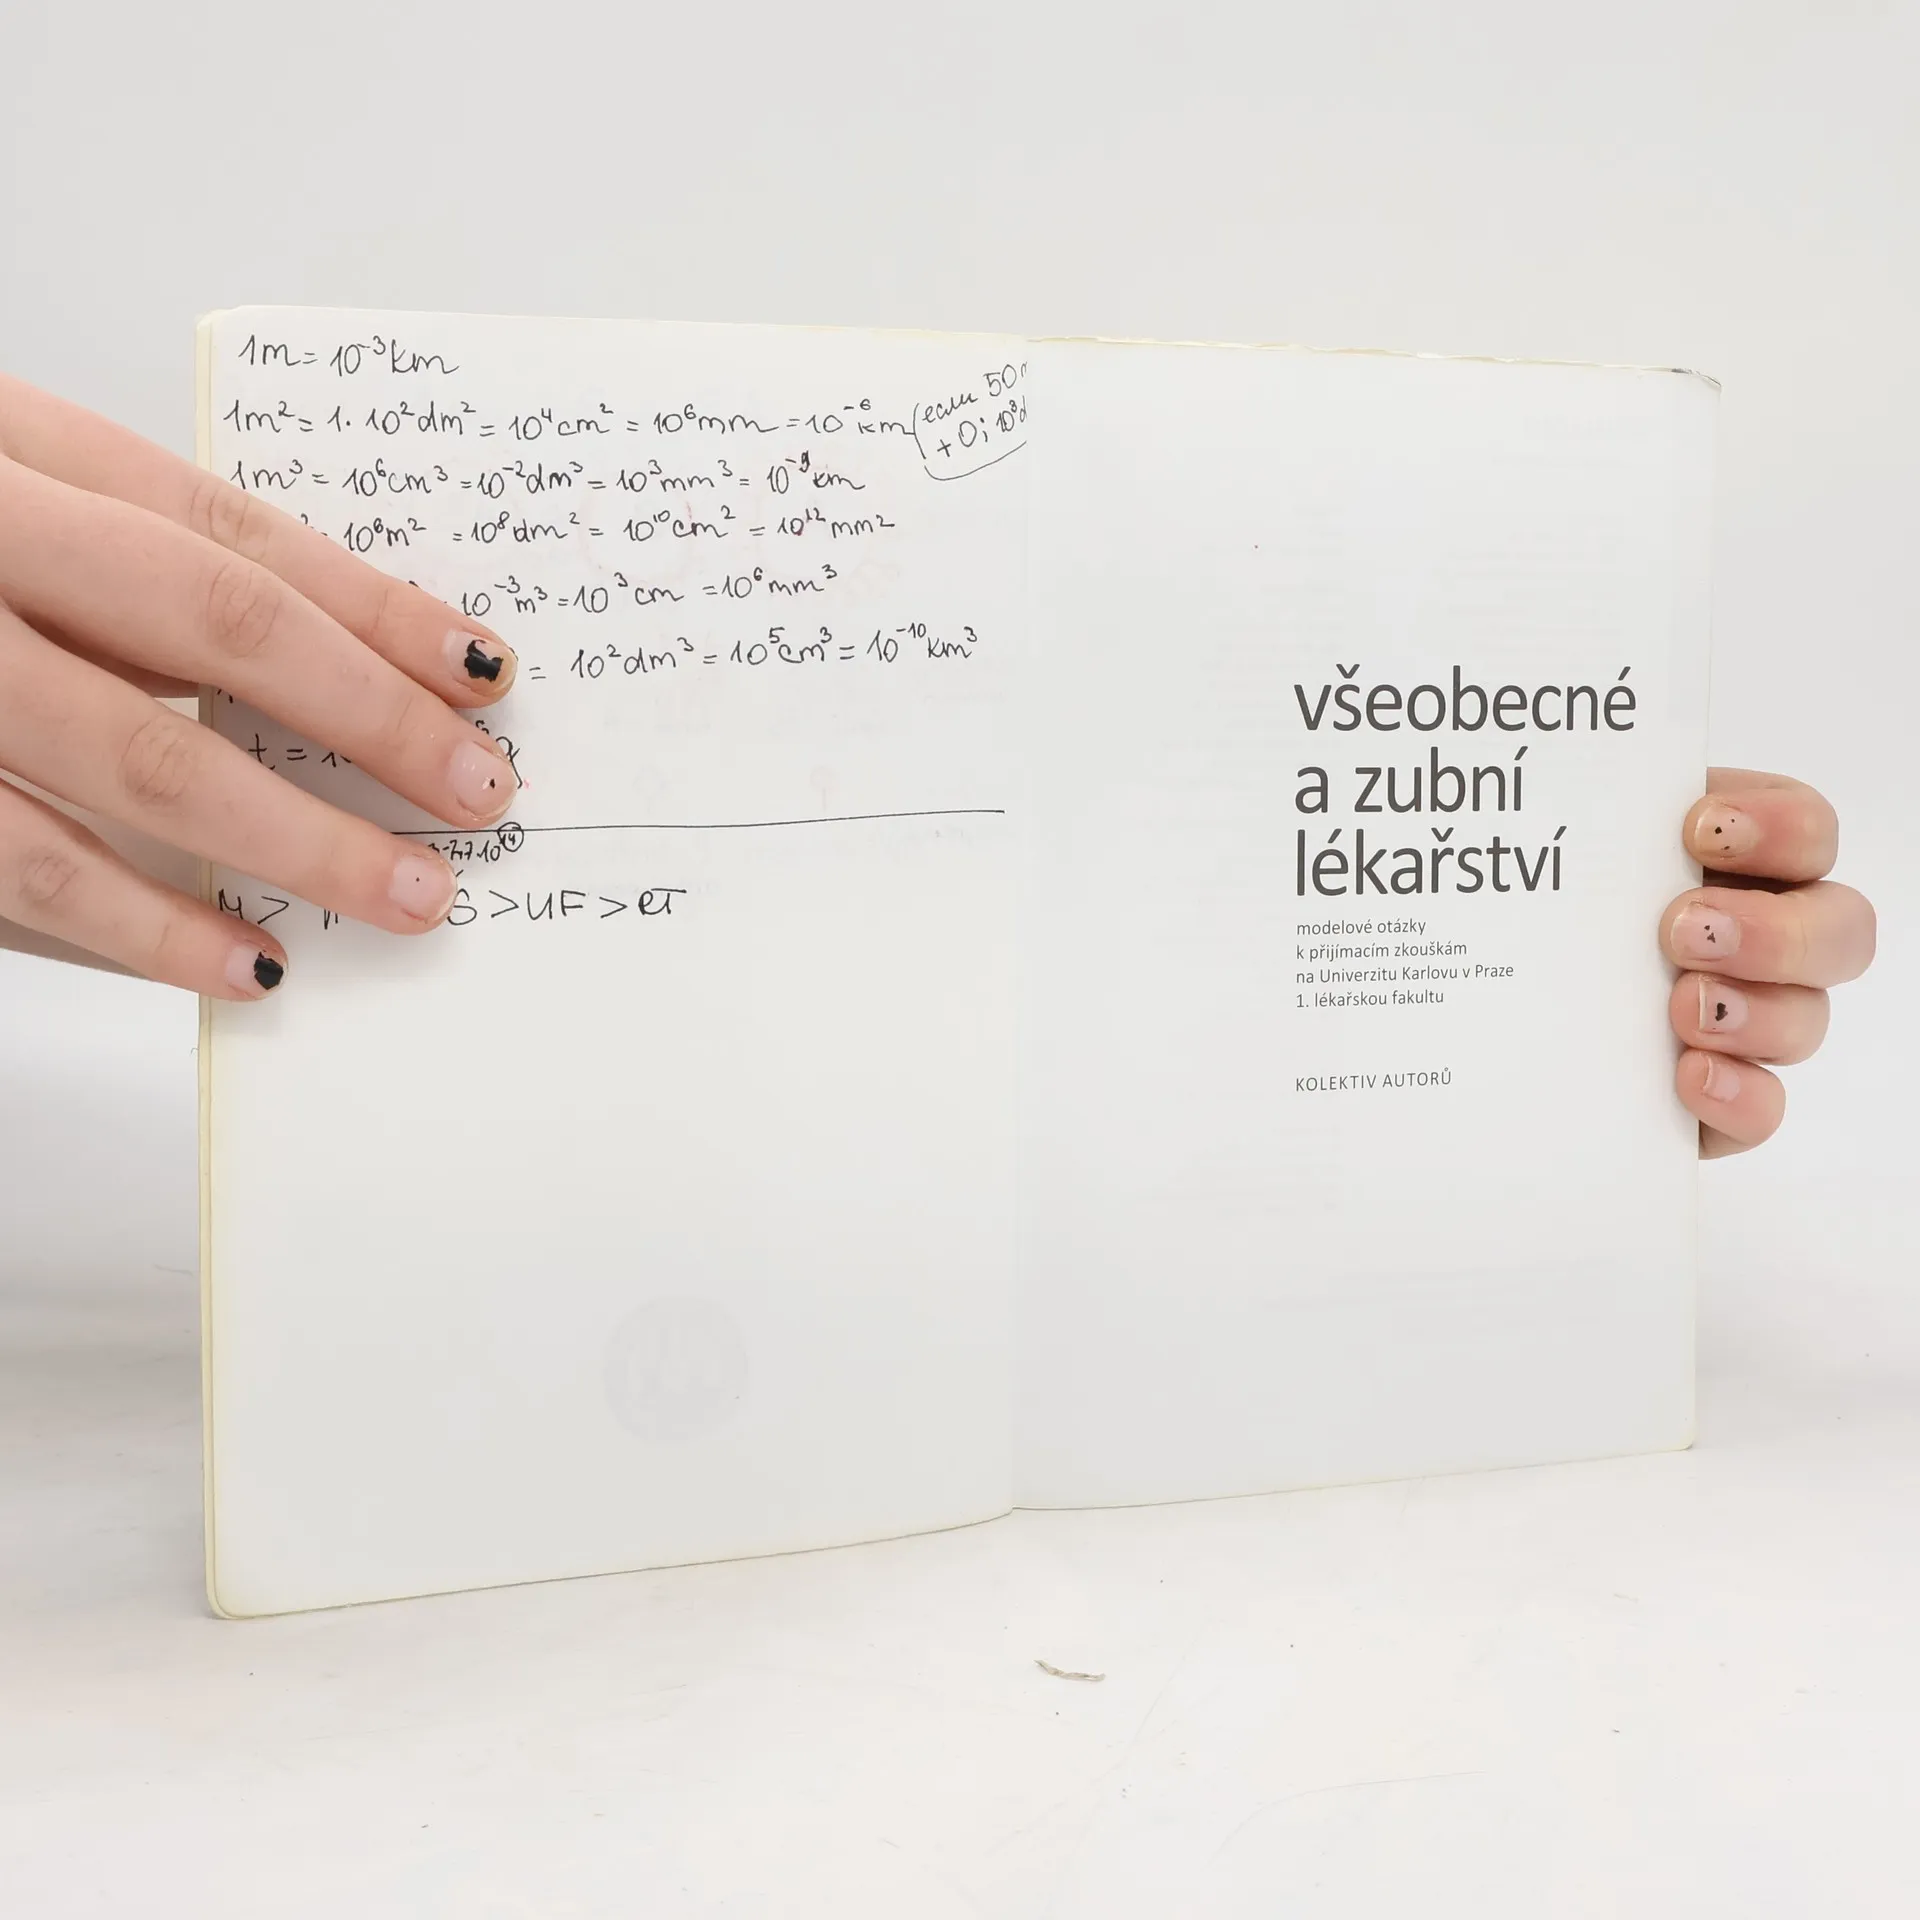 1m = 10⁻³km
1m² = 1. 10²dm² = 10⁴cm² = 10⁶mm = 10⁻⁶km (если 50
+0; 10³d
1m³ = 10⁶cm³ = 10⁻²dm³ = 10³mm³ = 10⁻⁹km
= 10⁶m² = 10⁸dm² = 10¹⁰cm² = 10¹²mm²
10⁻³m³ = 10³cm = 10⁶mm³
= 10²dm³ = 10⁵cm³ = 10⁻¹⁰km³
t =
3-7,7.10¹⁴
> UF >
všeobecné
a zubní
lékařství
modelové otázky
k přijímacím zkouškám
na Univerzitu Karlovu v Praze
1. lékařskou fakultu
KOLEKTIV AUTORŮ